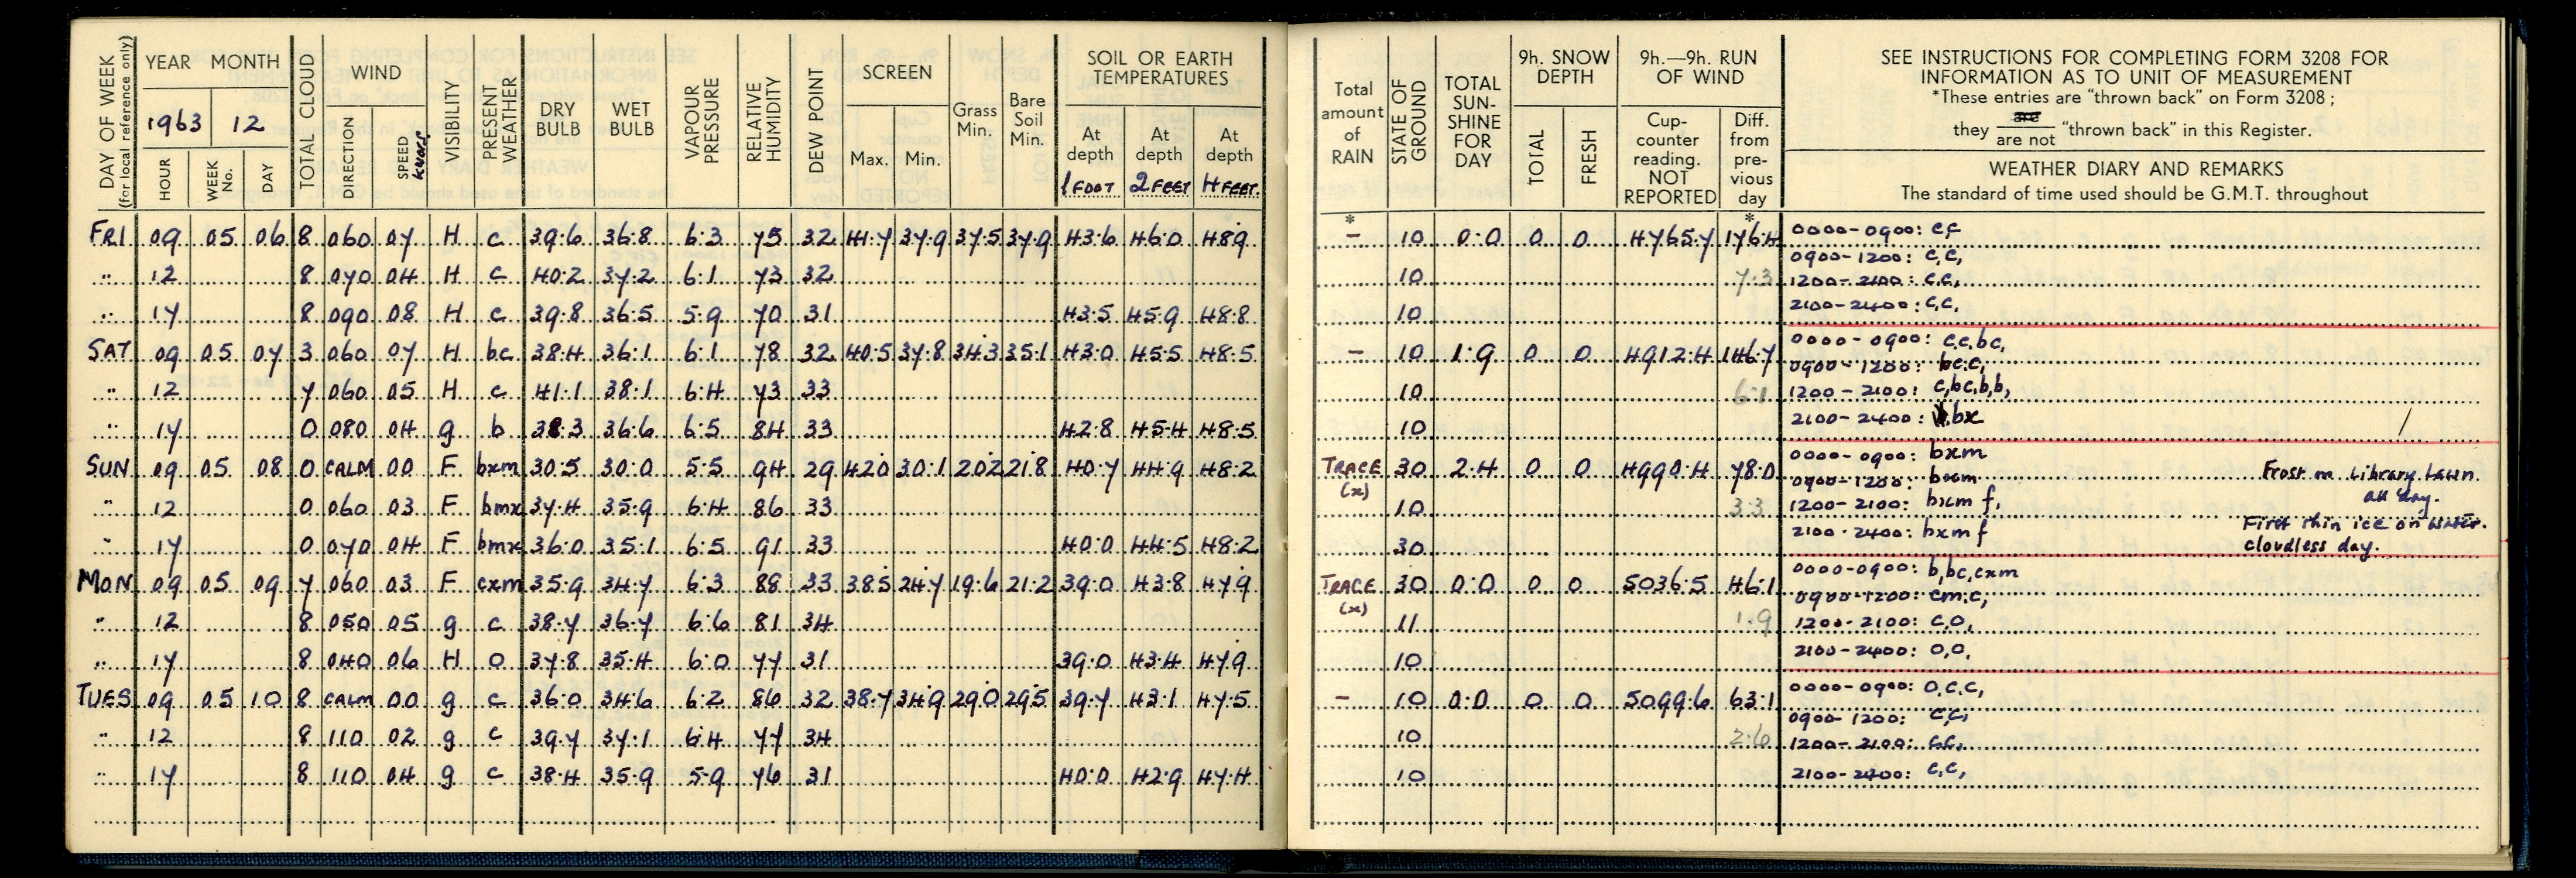 DAY OF WEEK (for local reference only)
YEAR MONTH
1963 12
HOUR WEEK No. DAY
TOTAL CLOUD
WIND
DIRECTION SPEED KNOTS
VISIBILITY
PRESENT WEATHER
DRY BULB
WET BULB
VAPOUR PRESSURE
RELATIVE HUMIDITY
DEW POINT
SCREEN
Max. Min.
Grass Min.
Bare Soil Min.
SOIL OR EARTH TEMPERATURES
At depth 1 FOOT
At depth 2 FEET
At depth 4 FEET.
FRI 09 05 06 8 060 07 H c 39.6 36.8 6.3 75 32 41.7 37.9 37.5 37.9 43.6 46.0 48.9
" 12 8 070 04 H c 40.2 37.2 6.1 73 32
" 17 8 090 08 H c 39.8 36.5 5.9 70 31 43.5 45.9 48.8
SAT 09 05 07 3 060 07 H bc 38.4 36.1 6.1 78 32 40.5 37.8 34.3 35.1 43.0 45.5 48.5
" 12 7 060 05 H c 41.1 38.1 6.4 73 33
" 17 0 080 04 g b 38.3 36.6 6.5 84 33 42.8 45.4 48.5
SUN 09 05 08 0 CALM 00 F bxm 30.5 30.0 5.5 94 29 42.0 30.1 20.2 21.8 40.7 44.9 48.2
" 12 0 060 03 F bmx 37.4 35.9 6.4 86 33
" 17 0 070 04 F bmx 36.0 35.1 6.5 91 33 40.0 44.5 48.2
MON 09 05 09 7 060 03 F cxm 35.9 34.7 6.3 88 33 38.5 24.7 19.6 21.2 39.0 43.8 47.9
" 12 8 050 05 g c 38.7 36.7 6.6 81 34
" 17 8 040 06 H o 37.8 35.4 6.0 77 31 39.0 43.4 47.9
TUES 09 05 10 8 CALM 00 g c 36.0 34.6 6.2 86 32 38.7 34.9 29.0 29.5 39.7 43.1 47.5
" 12 8 110 02 g c 39.7 37.1 6.4 77 34
" 17 8 110 04 g c 38.4 35.9 5.9 76 31 40.0 42.9 47.4
Total amount of RAIN
STATE OF GROUND
TOTAL SUN-SHINE FOR DAY
9h. SNOW DEPTH
TOTAL FRESH
9h.—9h. RUN OF WIND
Cup-counter reading. NOT REPORTED
Diff. from pre-vious day
SEE INSTRUCTIONS FOR COMPLETING FORM 3208 FOR
INFORMATION AS TO UNIT OF MEASUREMENT
*These entries are "thrown back" on Form 3208;
they are / are not "thrown back" in this Register.
WEATHER DIARY AND REMARKS
The standard of time used should be G.M.T. throughout
* *
– 10 0.0 0 0 4765.7 176.4 0000-0900: c,c
0900-1200: c,c,
10 7.3 1200-2100: c,c,
10 2100-2400: c,c,
– 10 1.9 0 0 4912.4 146.7 0000-0900: c,c,bc,
0900-1200: bc,c,
10 6.1 1200-2100: c,bc,b,b,
10 2100-2400: bx
TRACE (x) 30 2.4 0 0 4990.4 78.0 0000-0900: bxm
0900-1200: bxm
10 3.3 1200-2100: bxm f,
30 2100-2400: bxm f
Frost on Library Lawn
all day.
First thin ice on water.
cloudless day.
TRACE (x) 30 0.0 0 0 5036.5 46.1 0000-0900: b,bc,cxm
0900-1200: cm,c,
11 1.9 1200-2100: c,o,
10 2100-2400: o,o,
– 10 0.0 0 0 5099.6 63.1 0000-0900: o,c,c,
0900-1200: c,c,
10 2.6 1200-2100: c,c,
10 2100-2400: c,c,